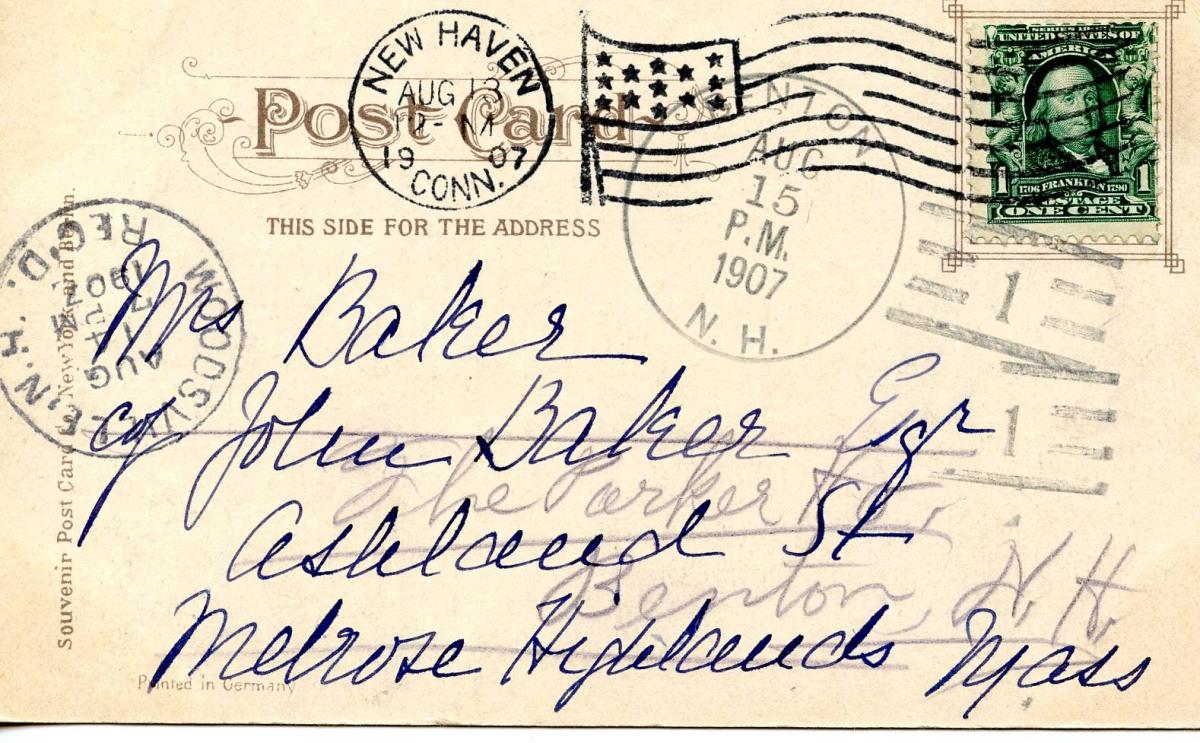 NEW HAVEN
AUG 13
1907
CONN.
Post Card
SERIES 1902
UNITED STATES OF
AMERICA
1 1706 FRANKLIN 1790 1
POSTAGE
ONE CENT
THIS SIDE FOR THE ADDRESS
BENTON
AUG
15
P.M.
1907
N. H.
1
1
WOODSVILLE, N.H.
AUG
1907
REC'D.
Mrs Baker
c/o John Baker Esqr
Ashland St
Melrose Highlands Mass
The Parker Ho.
Benton, N. H.
Souvenir Post Card Co. New York and Berlin.
Printed in Germany